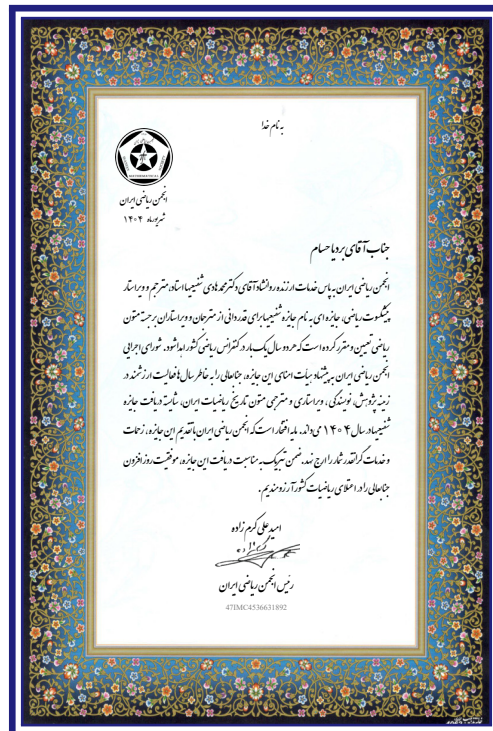 به نام خدا
انجمن ریاضی ایران
شهریورماه ۱۴۰۴
جناب آقای بردیا حسام
انجمن ریاضی ایران به پاس خدمات ارزنده روانشاد آقای دکتر محمدهادی شفیعیها استاد، مترجم و ویراستار
پیشکسوت ریاضی، جایزه‌ای به نام جایزه شفیعیها برای قدردانی از مترجمان و ویراستاران برجسته متون
ریاضی تعیین و مقرر کرده است که هر دو سال یک بار در کنفرانس ریاضی کشور اهدا شود. شورای اجرایی
انجمن ریاضی ایران به پیشنهاد هیأت امنای این جایزه، جنابعالی را به خاطر سال‌ها فعالیت ارزشمند در
زمینه پژوهش، نویسندگی، ویراستاری و مترجمی متون تاریخ ریاضیات ایران، شایسته دریافت جایزه
شفیعیها در سال ۱۴۰۴ می‌داند. مایه افتخار است که انجمن ریاضی ایران با تقدیم این جایزه، زحمات
و خدمات گرانقدر شما را ارج نهد. ضمن تبریک به مناسبت دریافت این جایزه، موفقیت روزافزون
جنابعالی را در اعتلای ریاضیات کشور آرزومندیم.
امیدعلی کرم‌زاده
رئیس انجمن ریاضی ایران
47IMC4536631892